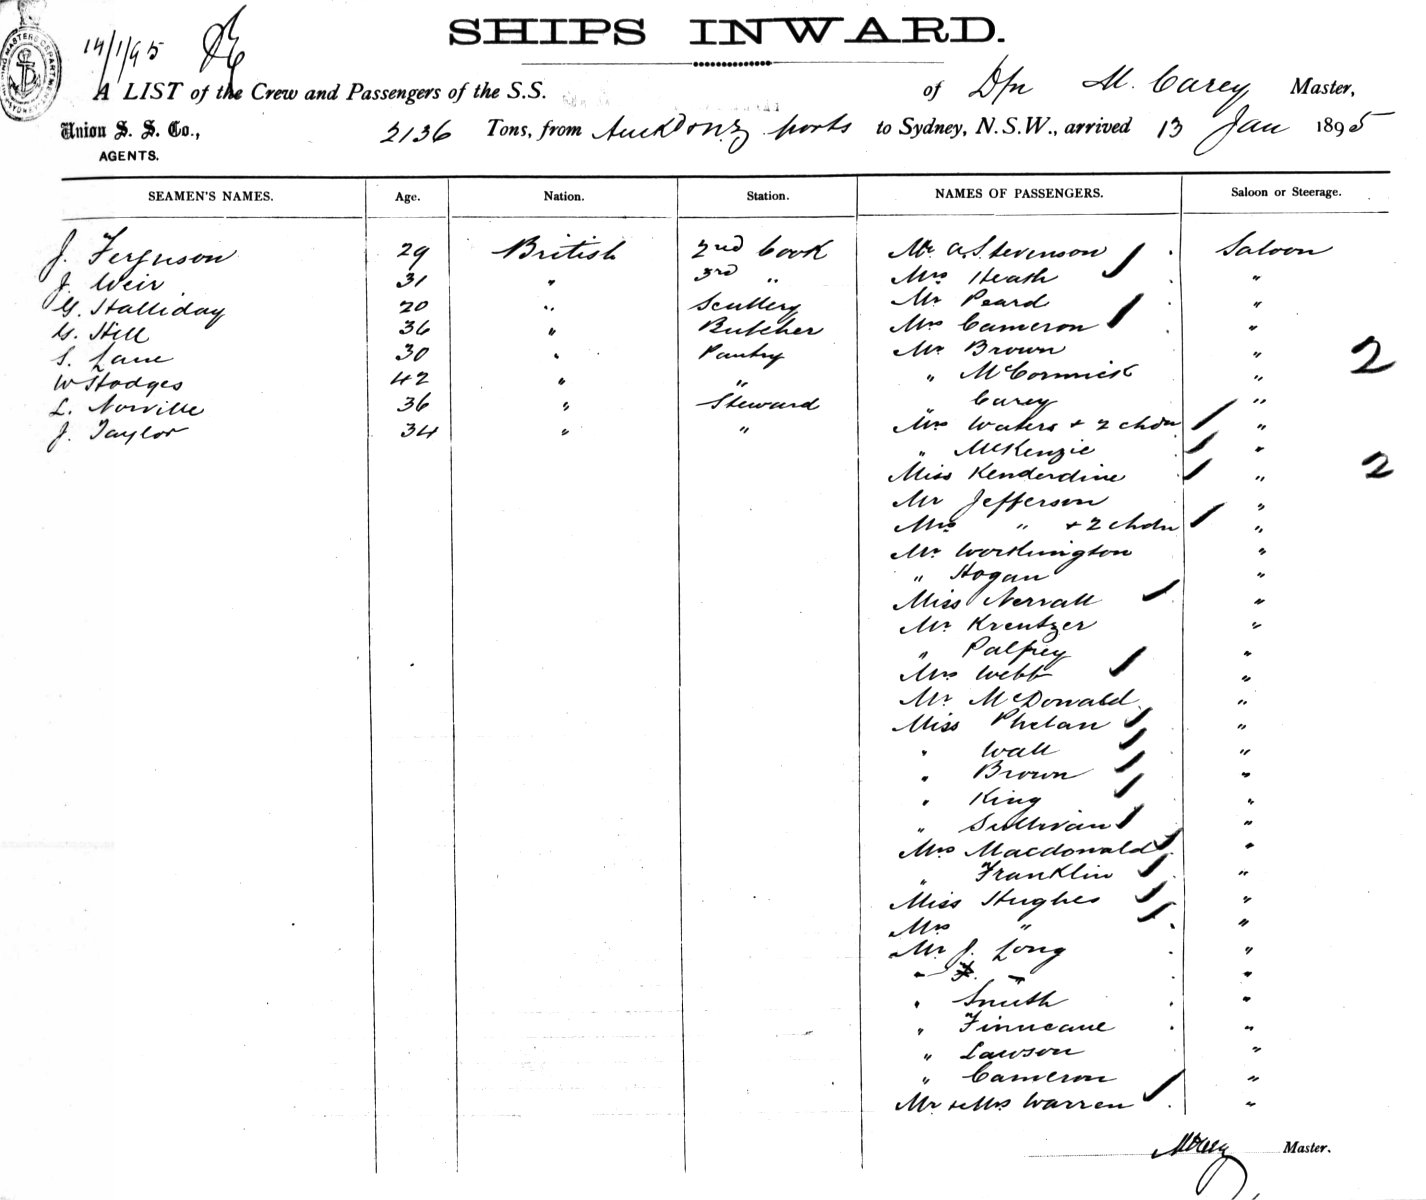 SHIPS INWARD.
14/1/95
A LIST of the Crew and Passengers of the S.S. of Dpn M. Carey Master,
Union S. S. Co., 2136 Tons, from Auck & N.Z. ports to Sydney, N.S.W., arrived 13 Jan 1895
AGENTS.
SEAMEN'S NAMES. Age. Nation. Station. NAMES OF PASSENGERS. Saloon or Steerage.
J. Ferguson 29 British 2nd Cook Mr A. Stevenson Saloon
J. Weir 31 " 3rd " Mrs Heath "
G. Halliday 20 " Scullery Mr Peard "
G. Hill 36 " Butcher Mrs Cameron "
S. Lane 30 " Pantry Mr Brown " 2
W Hodges 42 " " " McCormick "
L. Norville 36 " Steward " Carey "
J. Taylor 34 " " Mrs Waters + 2 chdn "
" McKenzie "
Miss Kenderdine " 2
Mr Jefferson "
Mrs " + 2 chdn "
Mr Worthington "
" Hogan "
Miss Nerrall "
Mr Kreutzer "
" Palfrey "
Mrs Webb "
Mr McDonald "
Miss Phelan "
" Wall "
" Brown "
" King "
" Sullivan "
Mrs Macdonald "
" Franklin "
Miss Hughes "
Mrs " "
Mr J. Long "
" F. " "
" Smith "
" Finucane "
" Lawson "
" Cameron "
Mr & Mrs Warren "
MCarey Master.